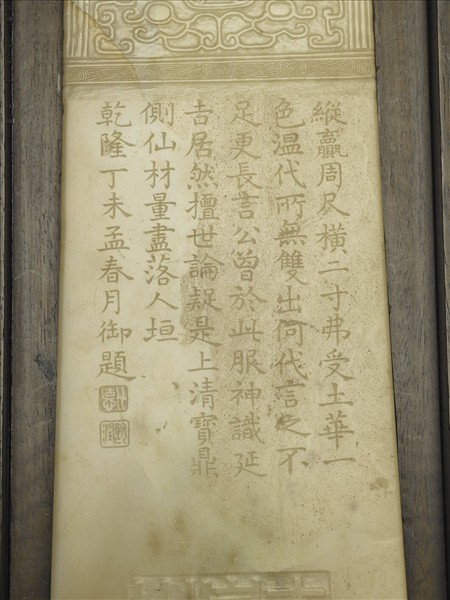 縱贏周尺橫二寸弗受土華一
色温代所無雙出何代言之不
足更長言公曾於此服神識延
吉居然擅世論疑是上清寶鼎
側仙材量盡落人垣
乾隆丁未孟春月御題